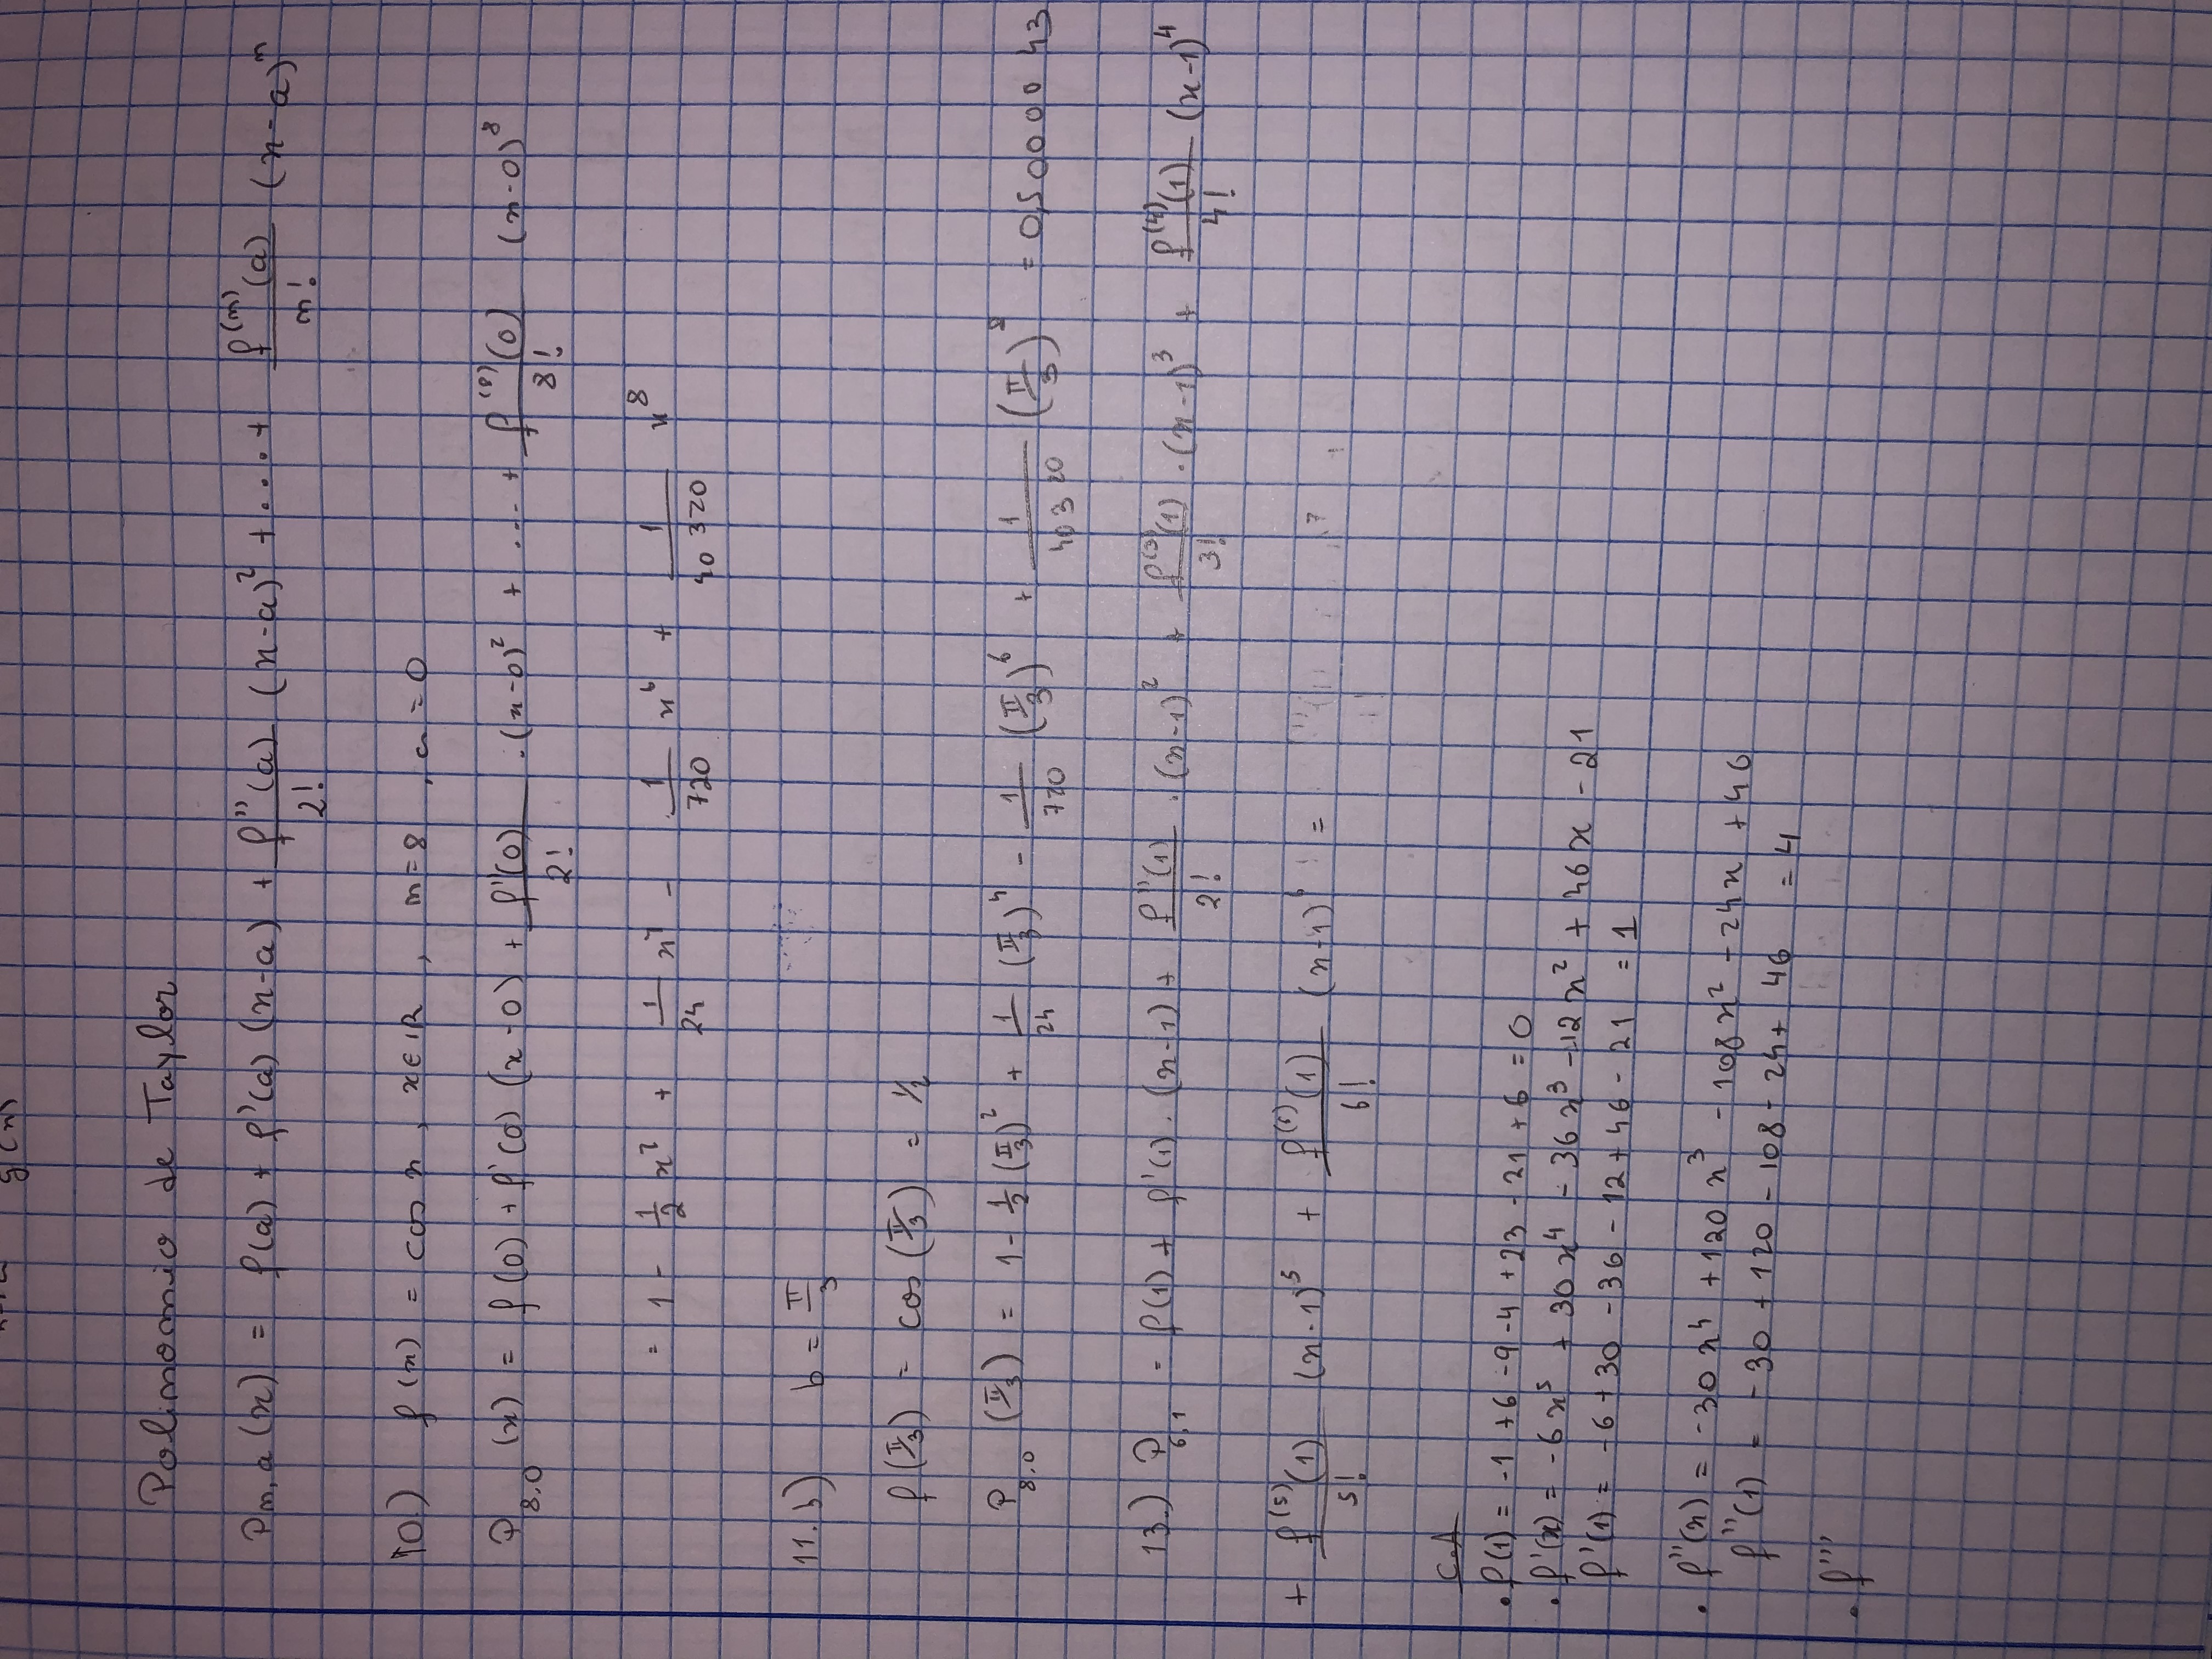 g(x)
Polinomio de Taylor
Pn,a (x) = f(a) + f'(a) (x-a) + f''(a)/2! (x-a)² + .... + f⁽ⁿ⁾(a)/n! (x-a)ⁿ
10) f(x) = cos x, x∈ℝ, n=8, a=0
P8,0 (x) = f(0) + f'(0) (x-0) + f'(0)/2! .(x-0)² + .... + f⁽⁸⁾(0)/8! (x-0)⁸
= 1 - 1/2 x² + 1/24 x⁴ - 1/720 x⁶ + 1/40 320 x⁸
11. b) b = π/3
f(π/3) = cos(π/3) = 1/2
P8,0 (π/3) = 1 - 1/2 (π/3)² + 1/24 (π/3)⁴ - 1/720 (π/3)⁶ + 1/40320 (π/3)⁸ = 0,5000043
13.) P6,1 = f(1) + f'(1) . (x-1) + f''(1)/2! . (x-1)² + f⁽³⁾(1)/3! . (x-1)³ + f⁽⁴⁾(1)/4! (x-1)⁴
+ f⁽⁵⁾(1)/5! (x-1)⁵ + f⁽⁶⁾(1)/6! (x-1)⁶ =
C.A
. f(1) = -1 +6 -9 -4 +23 -21 +6 = 0
. f'(x) = -6x⁵ + 30x⁴ - 36x³ - 12x² + 46x - 21
f'(1) = -6 + 30 - 36 - 12 + 46 - 21 = 1
. f''(x) = -30x⁴ + 120x³ - 108x² - 24x + 46
f''(1) = -30 + 120 - 108 - 24 + 46 = 4
. f'''